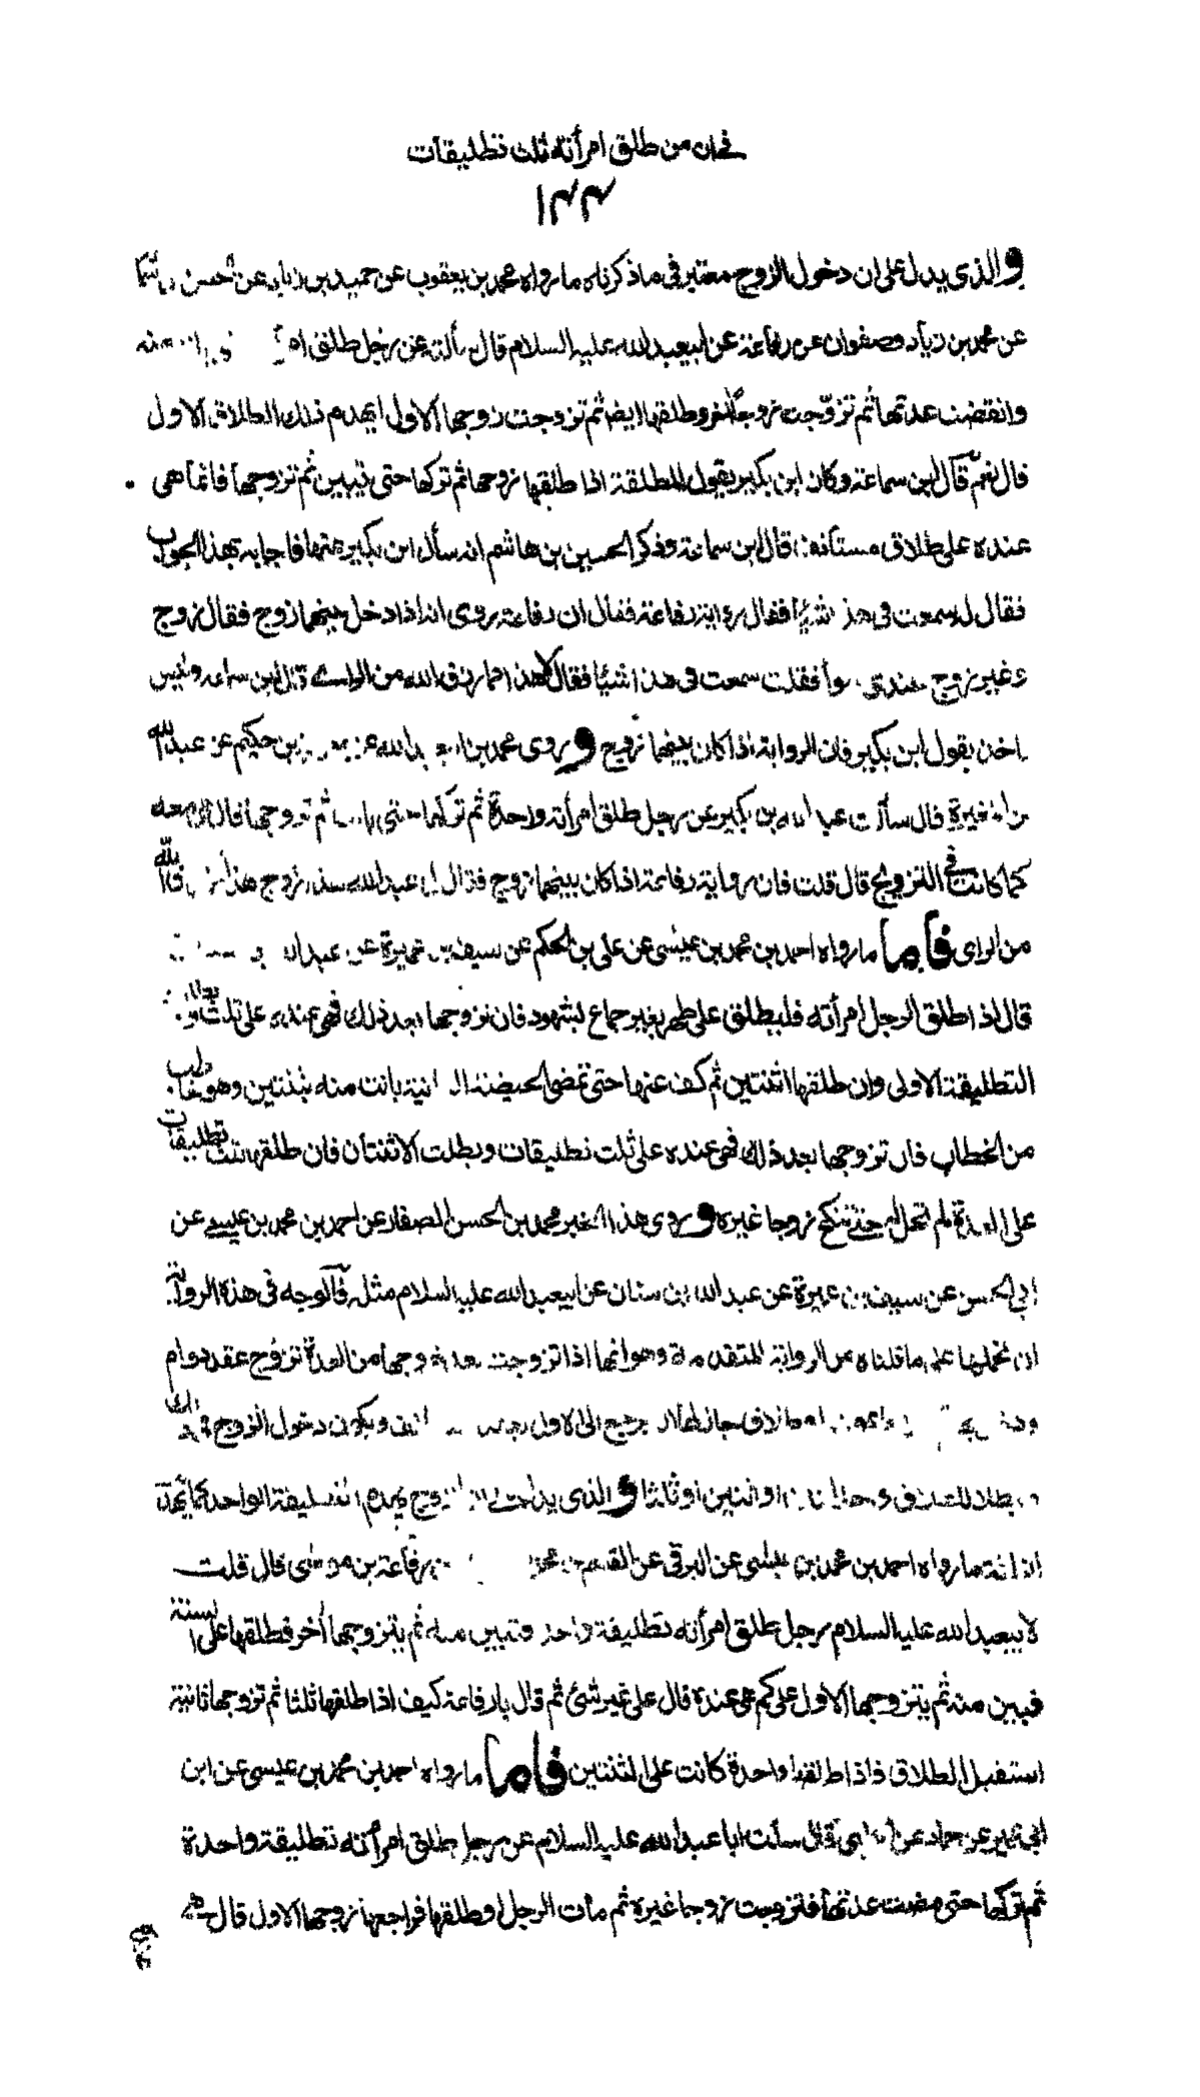 في ان من طلق امرأته ثلث تطليقات
١٤٣
والذى يدل على ان دخول الزوج معتبر فى ما ذكرناه ما رواه محمد بن يعقوب عن حميد بن زياد عن الحسن
عن محمد بن زياد وصفوان عن رفاعة عن ابيعبد الله عليه السلام قال سألته عن رجل طلق منه
وانقضت عدتها ثم تزوّجت زوجا آخر وطلقها ايضا ثم تزوجت زوجها الاول ايهدم ذلك الطلاق الاول
قال نعم قال ابن سماعة وكان ابن بكير يقول المطلقة اذا طلقها زوجها ثم تركها حتى تبين ثم تزوجها فانما هى
عنده على طلاق مستأنف قال ابن سماعة وذكر الحسين بن هاشم انه سأل ابن بكير عنها فاجابه بهذا الجواب
فقال له سمعت فى هذا شيئا فقال رواية رفاعة فقال ان رفاعة روى انه اذا دخل بينهما زوج فقال زوج
وغير زوج عندى سوأ فقلت سمعت فى هذا شيئا فقال لا هذا مما رزق الله من الراى قال ابن سماعه وليس
ياخذ بقول ابن بكير فان الرواية اذا كان بينهما زوج وروى محمد بن عبد الله بن حكيم عن عبد الله
بن المغيرة قال سألت عبد الله بن بكير عن رجل طلق امرأته واحدة ثم تركها حتى بانت ثم تزوجها قال هى معه
كما كانت في التزويج قال قلت فان رواية رفاعة اذا كان بينهما زوج فقال لى عبد الله هذا زوج هذا الله
من الراى فاما ما رواه احمد بن محمد بن عيسى عن على بن الحكم عن سيف بن عميرة عن عبد الله
قال اذا طلق الرجل امرأته فليطلق على طهر بغير جماع بشهود فان تزوجها بعد ذلك فهى عنده على ثلث
التطليقة الاولى وان طلقها اثنتين ثم كف عنها حتى تمضى الحيضة الثانية بانت منه بثنتين وهو خاطب
من الخطاب فان تزوجها بعد ذلك فهى عنده على ثلث تطليقات وبطلت الاثنتان فان طلقها ثلث تطليقات
على العدة لم تحل له حتى تنكح زوجا غيره وروى هذا الخبر محمد بن الحسن الصفار عن احمد بن محمد بن عيسى عن
ابى الحسن عن سيف بن عميرة عن عبد الله بن سنان عن ابيعبد الله عليه السلام مثله فالوجه فى هذه الرواية
ان نحملها على ما قلناه من الرواية المتقدمة وهو انها اذا تزوجت بعد خروجها من العدة تزوج عقد دوام
جاز لها ان يرجع الى الاول ويكون دخول الزوج فى ذلك
او اثنتين او ثلثا والذى يدل على ان الزوج يهدم التطليقة الواحدة كما يهدم
الثلثة ما رواه احمد بن محمد بن عيسى عن البرقى عن القسم بن محمد رفاعة بن موسى قال قلت
لابيعبد الله عليه السلام رجل طلق امرأته تطليقة واحدة فتبين منه ثم يتزوجها آخر فطلقها على السنة
فتبين منه ثم يتزوجها الاول على كم هى عنده قال على غير شئ ثم قال يا رفاعة كيف اذا طلقها ثلثا ثم تزوجها ثانية
استقبل الطلاق فاذا طلقها واحدة كانت على اثنتين فاما ما رواه احمد بن محمد بن عيسى عن ابن
ابى عمير عن حماد عن الحلبى قال سألت ابا عبد الله عليه السلام عن رجل طلق امرأته تطليقة واحدة
ثم تركها حتى مضت عدتها فتزوجت زوجا غيره ثم مات الرجل او طلقها فراجعها زوجها الاول قال هى